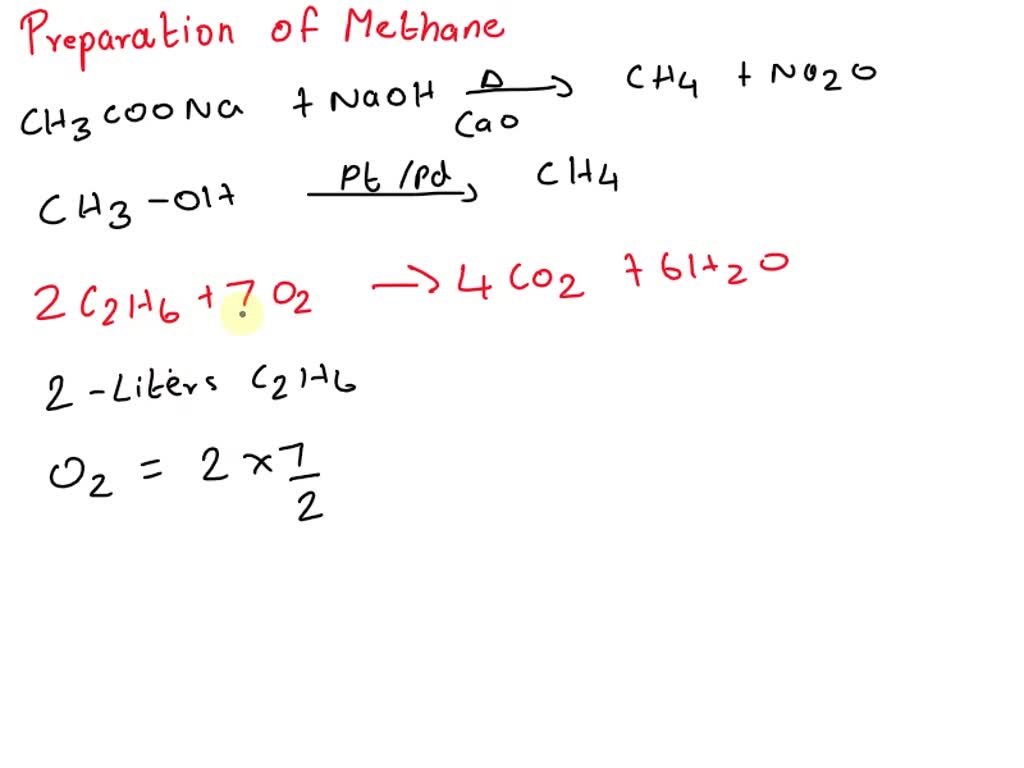 Preparation of Methane
CH3COONa + NaOH Δ/CaO → CH4 + Na2O
CH3-OH Pt/Pd → CH4
2C2H6 + 7O2 → 4CO2 + 6H2O
2-Liters C2H6
O2 = 2 × 7/2